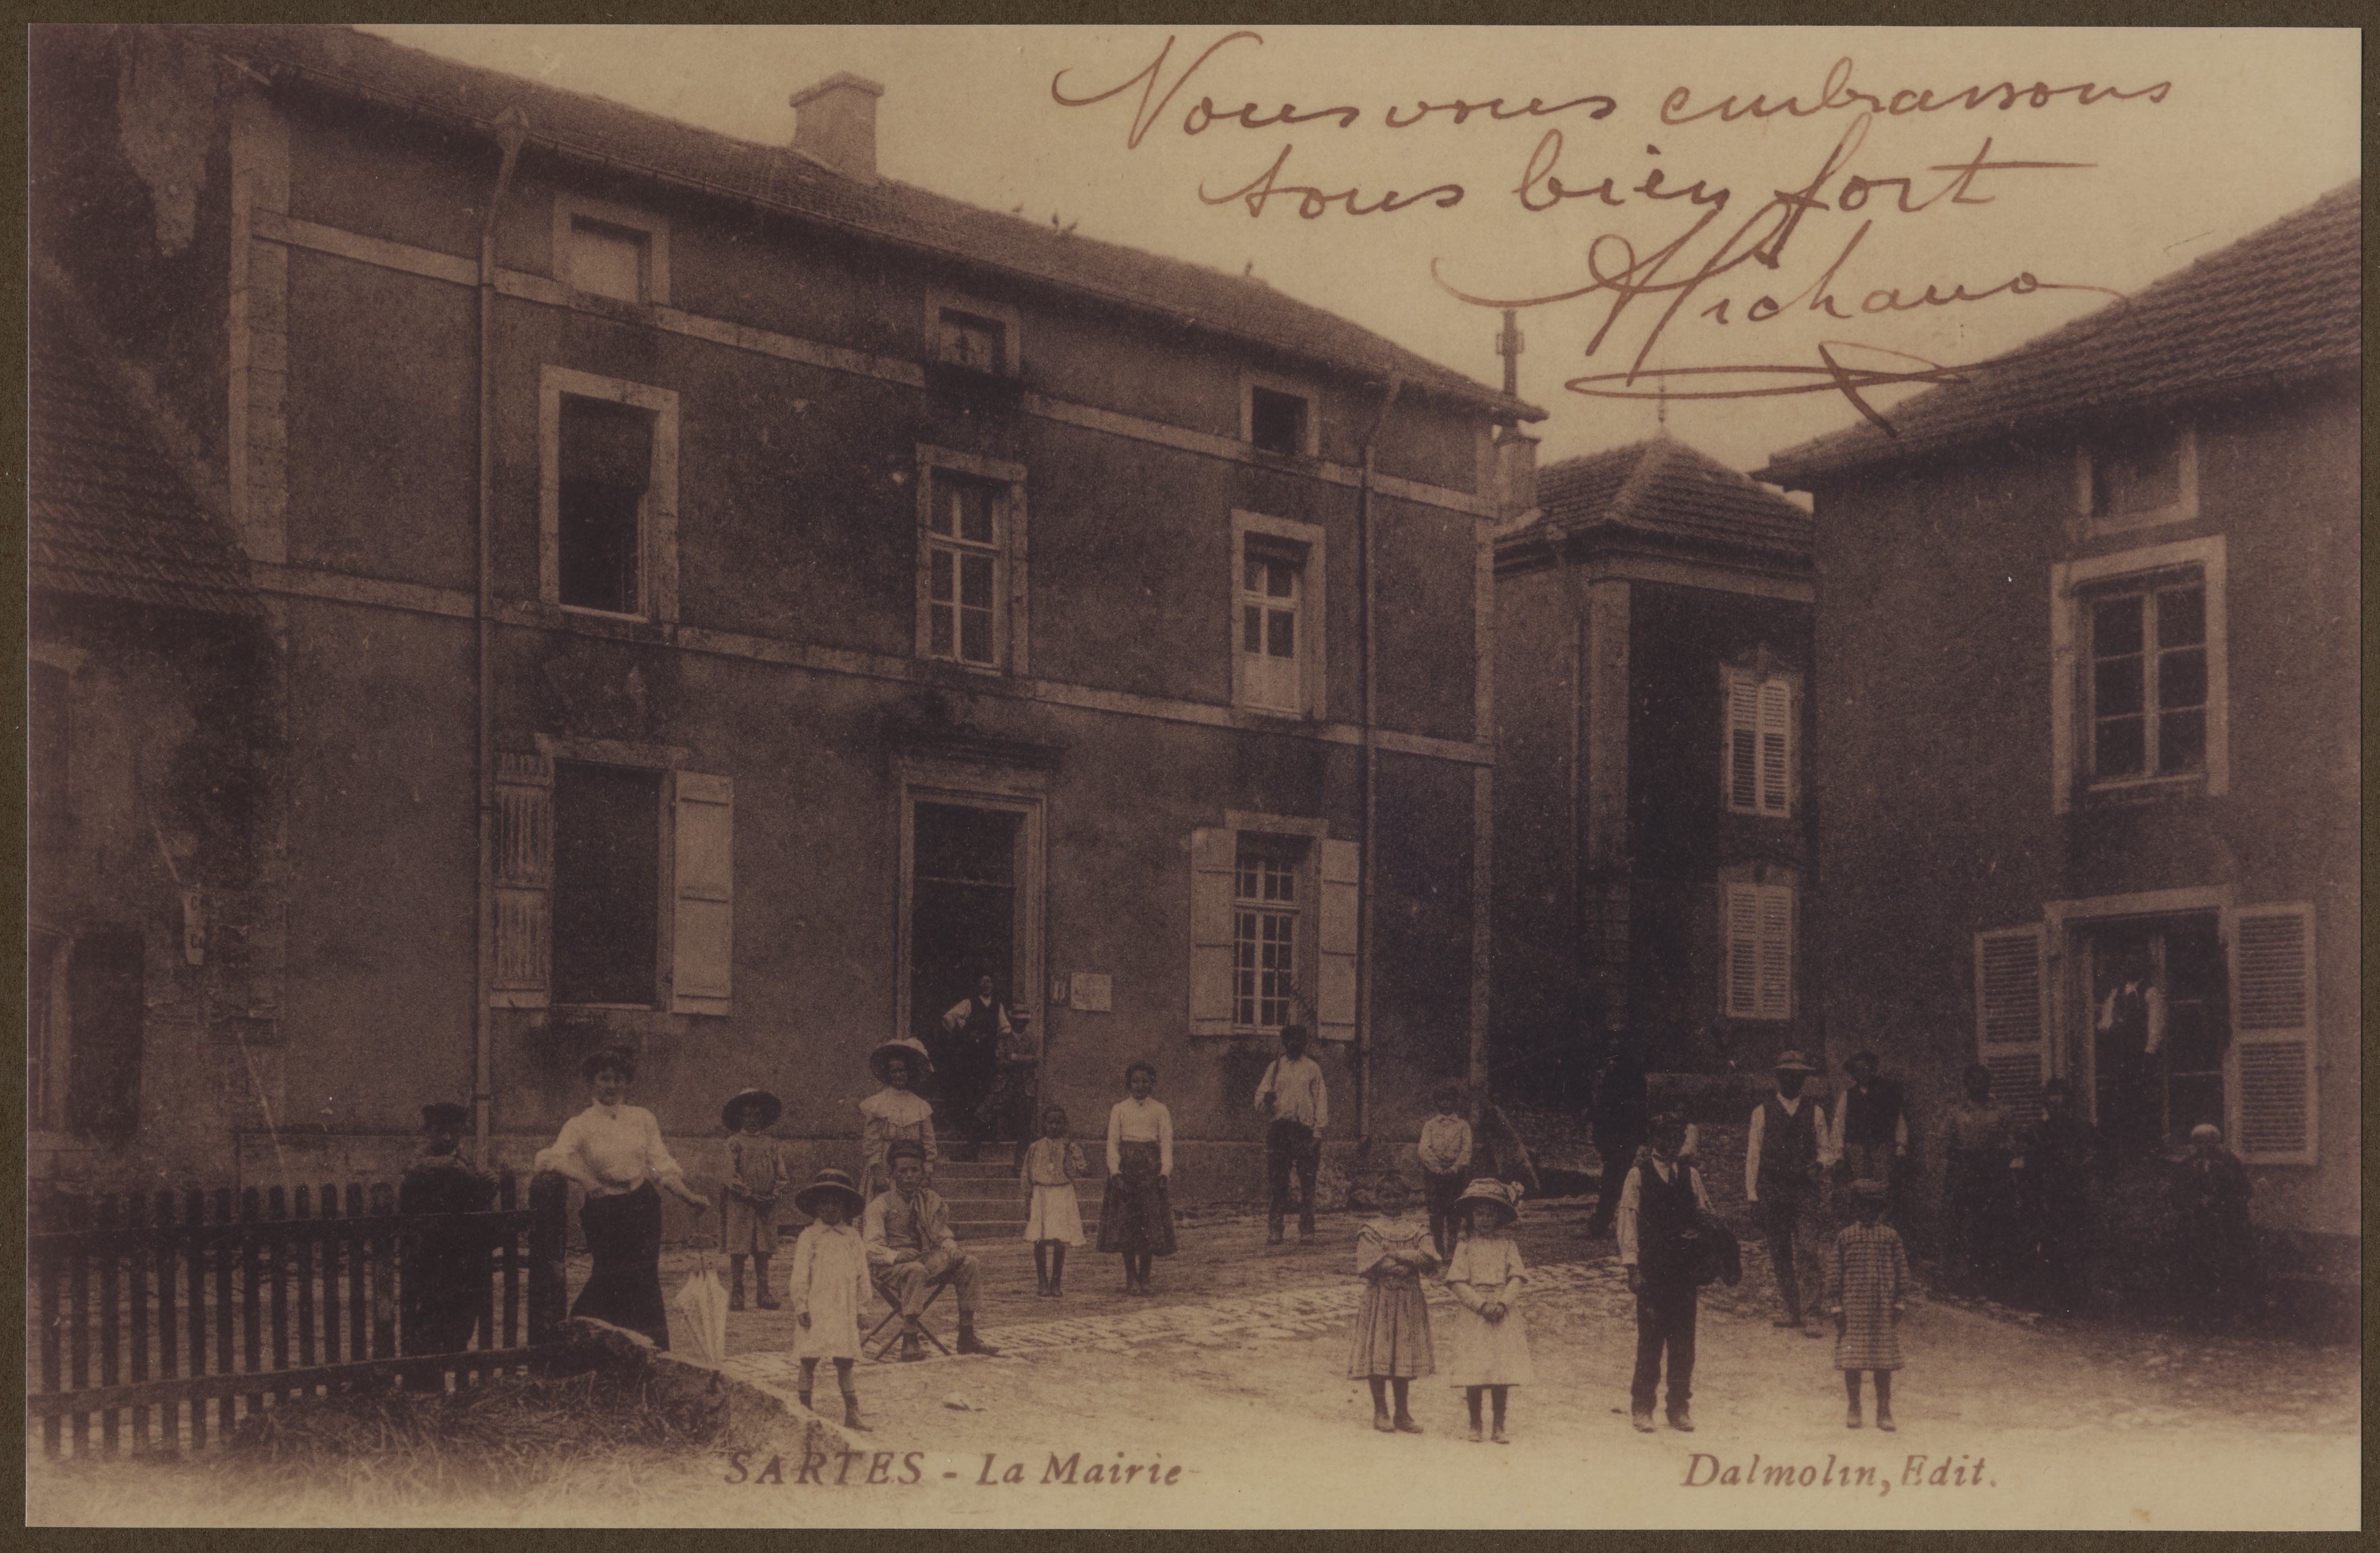 Nous vous embrassons
tous bien fort
Michaud
SARTES - La Mairie
Dalmolin, Edit.